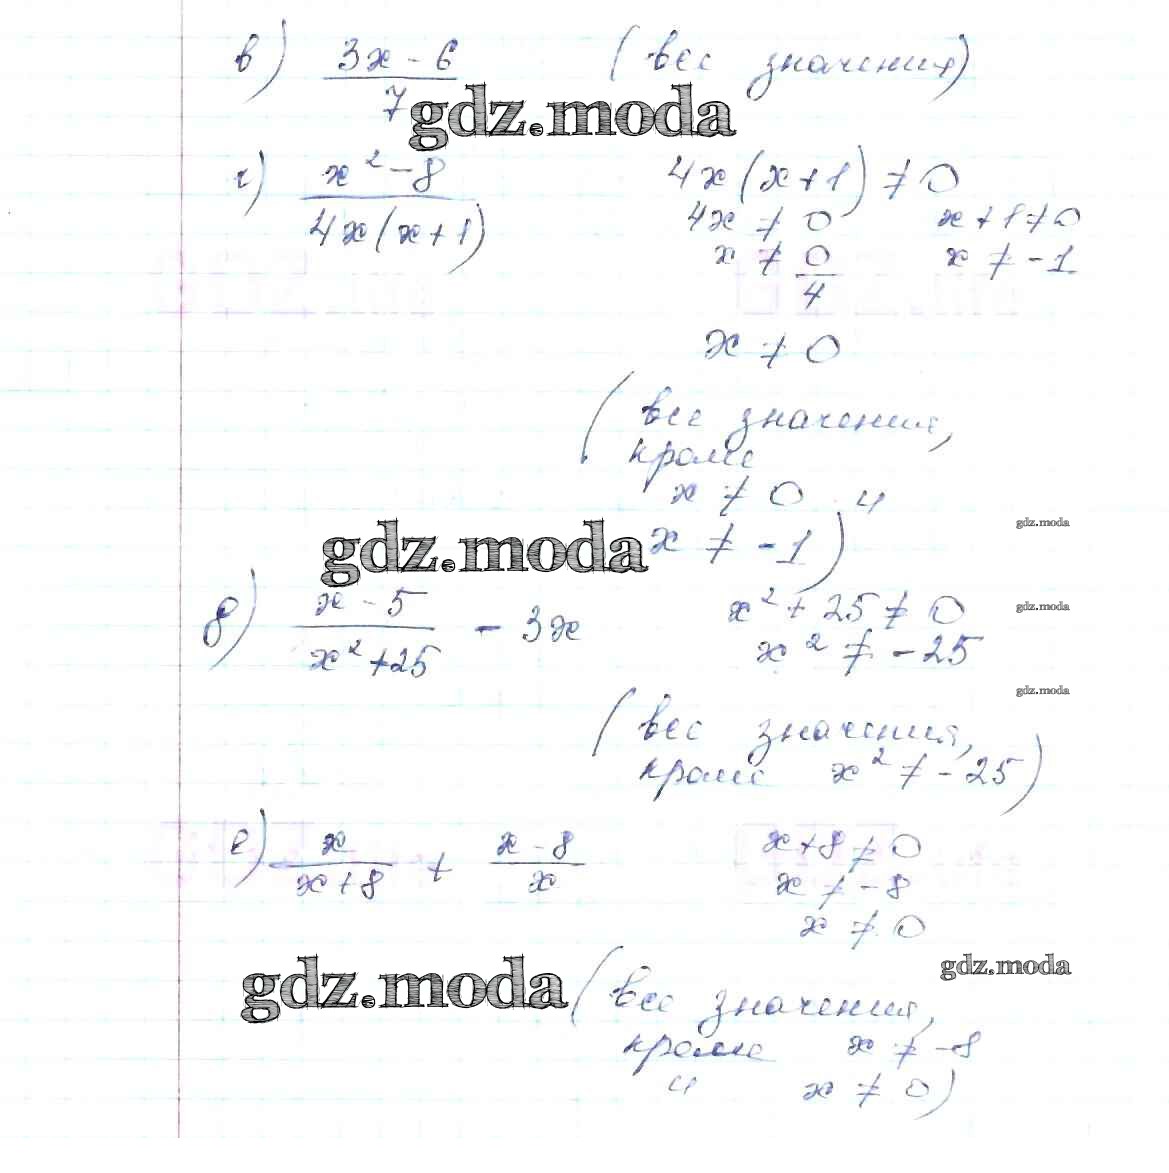 в) 3x - 6 (все значения)
7
gdz.moda
г) x² - 8 4x(x+1) ≠ 0
4x(x+1) 4x ≠ 0 x+1≠0
x ≠ 0 x ≠ -1
4
x ≠ 0
(все значения,
кроме
x ≠ 0 и
gdz.moda x ≠ -1)
gdz.moda
д) x - 5 - 3x x² + 25 ≠ 0
gdz.moda
x² + 25 x² ≠ -25
gdz.moda
(все значения,
кроме x² ≠ -25)
е) x + x - 8 x+8 ≠ 0
x+8 x x ≠ -8
x ≠ 0
gdz.moda
gdz.moda (все значения,
кроме x ≠ -8
и x ≠ 0)